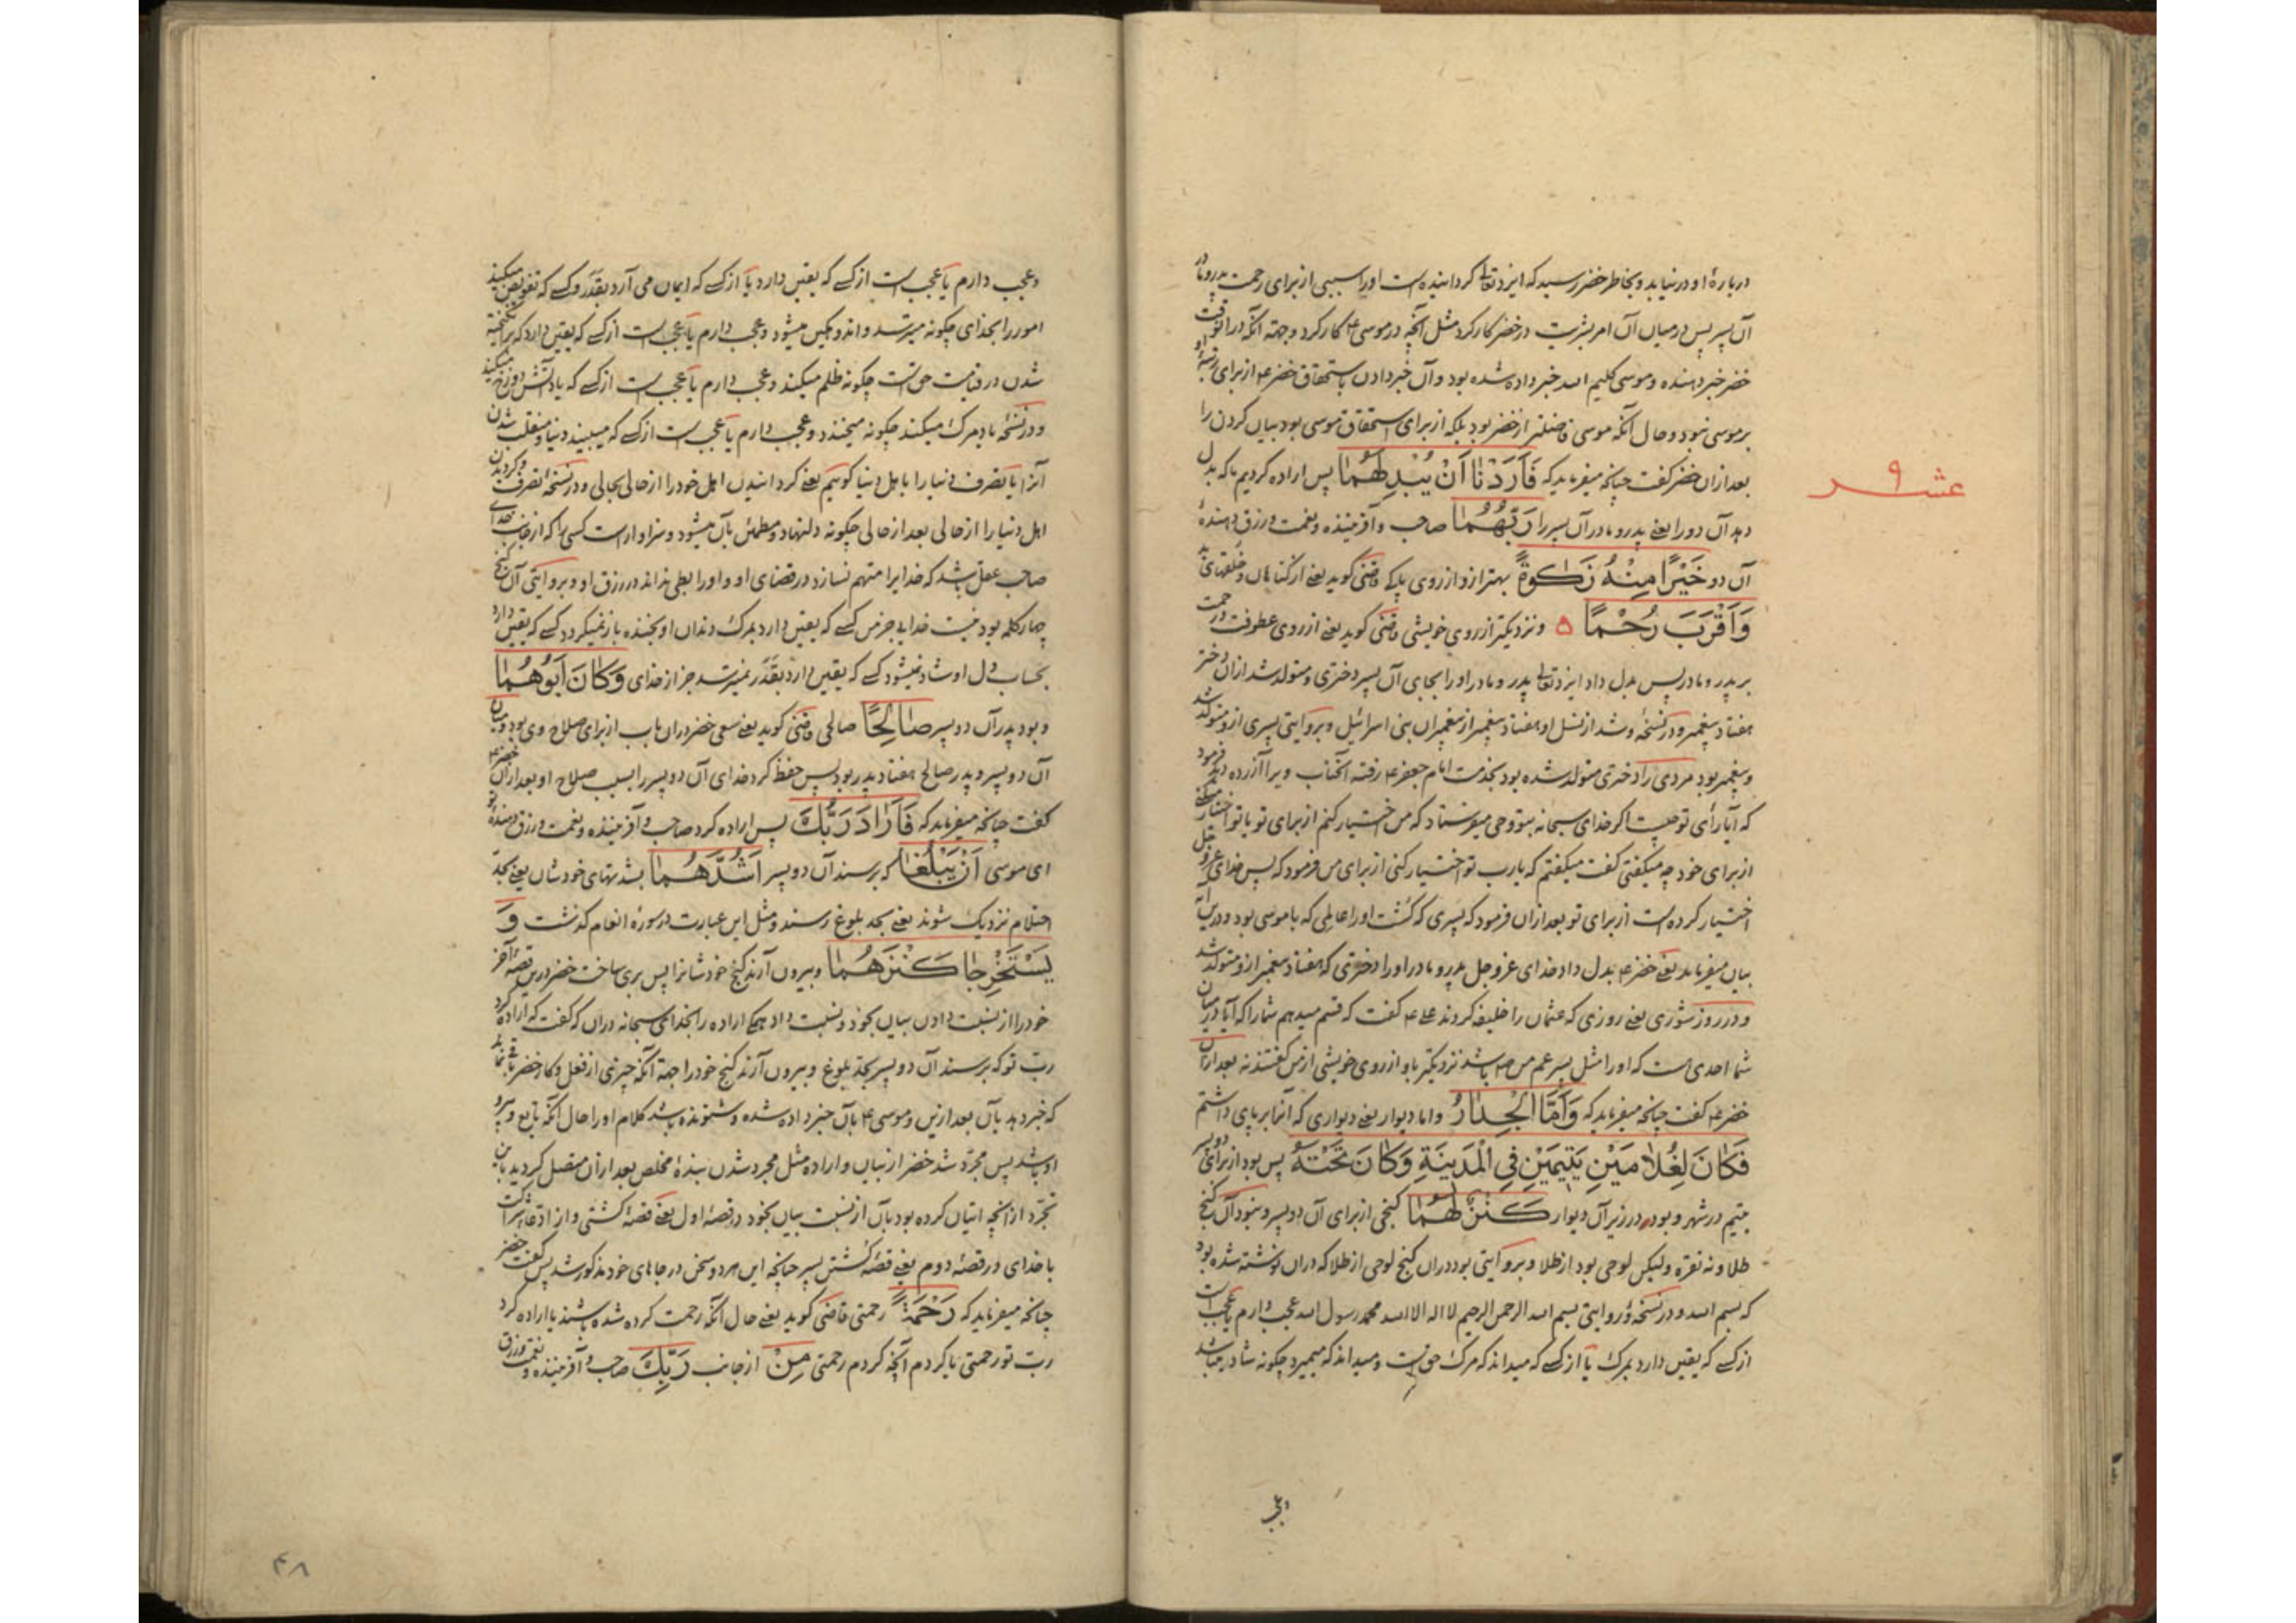 درباره او در نیاید و بخاطر خضر رسید که ایزد تعالی گردانیده است او را سببی از برای رحمت پدر و مادر
آن پسر پس در میان آن امر بشریت در خضر کار کرد مثل آنچه در موسی ۴ کار کرد و جهة آنکه در آنوقت
خضر خبر دهنده و موسی کلیم الله خبر داده شده بود و آن خبر دادن باستحقاق خضر ۴ از برای رتبهٔ او
بر موسی نبود و حال آنکه موسی فاضلتر از خضر بود بلکه از برای استحقاق موسی بود بیان کردن را
بعد ازان خضر گفت چنانچه میفرماید که فَاَرَدْنٰا اَنْ یُبْدِلَهُمٰا پس اراده کردیم ما که بدل
عشر ۹
دهد آن دو را یعنے پدر و مادر آن پسر را رَبُّهُمٰا صاحب و آفریننده و نعمت و رزق دهندهٔ
آن دو خَیْرًا مِنْهُ زَکٰوةً بهتر ازو از روی پاکی قاضی گوید یعنے از گناهان و خلقهای بد
وَاَقْرَبَ رُحْمًا ۵ و نزدیکتر از روی خویشی قاضی گوید یعنے از روی عطوفت و رحمت
بر پدر و مادر پس بدل داد ایزد تعالی پدر و مادر او را بجای آن پسر دختری و متولد شد ازان دختر
هفتاد پیغمبر و در نسخهٔ و شد از نسل او هفتاد پیغمبر از پیغمبران بنی اسرائیل و بروایتی پسری ازو متولد شد
و پیغمبر بود مردی را دختری متولد شده بود بخدمت امام جعفر ۴ رفته آنجناب ویرا آزرده دید فرمود
که آیا رأی تو چیست اگر خدای سبحانه بتو وحی میفرستاد که من اختیار کنم از برای تو یا تو اختیار میکنی
از برای خود چه میگفتی گفت میگفتم که یا رب تو اختیار کنی از برای من فرمود که پس خدای عز و جل
اختیار کرده است از برای تو بعد ازان فرمود که پسری که کشت او را عالمی که با موسی بود و درین آیه
بیان میفرماید یعنے خضر ۴ بدل داد خدای عز و جل پدر و مادر او را دختری که هفتاد پیغمبر ازو متولد شد
و در روز شوری یعنے روزی که عثمان را خلیفه کردند علے ۴ گفت که قسم میدهم شما را که آیا در میان
شما احدی است که او را مثل پسر عم من باشد نزدیکتر باو از روی خویشی از من گفتند نه بعد ازان
خضر ۴ گفت چنانچه میفرماید که وَاَمَّا الْجِدٰارُ و اما دیوار یعنے دیواری که آنرا برپای داشتم
فَکٰانَ لِغُلٰامَیْنِ یَتِیمَیْنِ فِی الْمَدِینَةِ وَکٰانَ تَحْتَهُ پس بود از برای دو پسر
یتیم در شهر و بود در زیر آن دیوار کَنْزٌ لَهُمٰا گنجی از برای آن دو پسر و نبود آن گنج
طلا و نه نقره ولیکن لوحی بود از طلا و بروایتی بود دران گنج لوحی از طلا که دران نوشته شده بود
که بسم الله و در نسخهٔ و روایتی بسم الله الرحمن الرحیم لا اله الا الله محمد رسول الله عجب دارم یا عجب است
از کسے که یقین دارد بمرگ یا از کسے که میداند که مرگ حق است و میداند که میمیرد چگونه شاد میباشد
و عجب دارم یا عجب است از کسے که یقین دارد یا از کسے که ایمان می آرد بقَدَر و کسے که تفویض میکند
امور را بخدای چگونه میترسد و اندوهگین میشود و عجب دارم یا عجب است از کسے که یقین دارد که برانگیخته
شدن در قیامت حق است چگونه ظلم میکند و عجب دارم یا عجب است از کسے که یاد آتش دوزخ میکند
و در نسخهٔ یاد مرگ میکند چگونه میخندد و عجب دارم یا عجب است از کسے که میبیند دنیا و منقلب شدن
آنرا یا تصرف دنیا را باهل دنیا گوئیم یعنے گردانیدن اهل خود را از حالی بحالی و در نسخهٔ تصرف و گردیدن
اهل دنیا را از حالی بعد از حالی چگونه دلنهاد و مطمئن بآن میشود و سزاوار است کسی را که از جانب خدای
صاحب عقل باشد که خدایرا متهم نسازد در قضای او و او را بطی نداند در رزق او و بروایتی آن گنج
چهار کلمه بود نیست خدایی جز من کسے که یقین دارد بمرگ دندان او بخنده باز نمیگردد کسے که یقین دارد
بحساب دل او شاد نمیشود کسے که یقین دارد بقَدَر نمیترسد جز از خدای وَکٰانَ اَبُوهُمٰا
و بود پدر آن دو پسر صٰالِحًا صالحی قاضی گوید یعنے سعی خضر دران باب از برای صلاح وی بود و میان
آن دو پسر و پدر صالح هفتاد پدر بود پس حفظ کرد خدای آن دو پسر را بسبب صلاح او بعد ازان خضر ۴
گفت چنانچه میفرماید که فَاَرٰادَ رَبُّكَ پس اراده کرد صاحب و آفریننده و نعمت و رزق دهندهٔ تو
ای موسی اَنْ یَبْلُغٰا که برسند آن دو پسر اَشُدَّهُمٰا بشدتهای خودشان یعنے بحد
احتلام نزدیک شوند یعنے بحد بلوغ رسند و مثل این عبارت در سورهٔ انعام گذشت وَ
یَسْتَخْرِجٰا کَنْزَهُمٰا و بیرون آرند گنج خودشانرا پس بری ساخت خضر درین قصهٔ آخر
خود را از نسبت دادن بیان بخود و نسبت داد همگی اراده را بخدای سبحانه دران که گفت که اراده کرد
ربّ تو که برسند آن دو پسر بحد بلوغ و بیرون آرند گنج خود را جهة آنکه چیزی از فعل و کار خضر باقی نماند
که خبر دهد بآن بعد ازین و موسی ۴ بآن خبر داده شده و شنونده باشد کلام او را حال آنکه تابع و پیرو
او باشد پس مجرد شد خضر از بیان و اراده مثل مجرد شدن بندهٔ مخلص بعد ازان متصل گردید باین
تجرد از آنچه اتیان کرده بود بآن از نسبت بیان بخود در قصهٔ اول یعنے قصهٔ کشتی و از ادعای شراکت
با خدای در قصهٔ دوم یعنے قصهٔ کشتن پسر چنانچه این هر دو سخن در جاهای خود مذکور شد پس گفت خضر
چنانچه میفرماید که رَحْمَةً رحمتی قاضی گوید یعنے حال آنکه رحمت کرده شده باشند یا اراده کرد
ربّ تو رحمتی یا کردم آنچه کردم رحمتی مِنْ از جانب رَبِّكَ صاحب و آفریننده و نعمت و رزق
۴۸